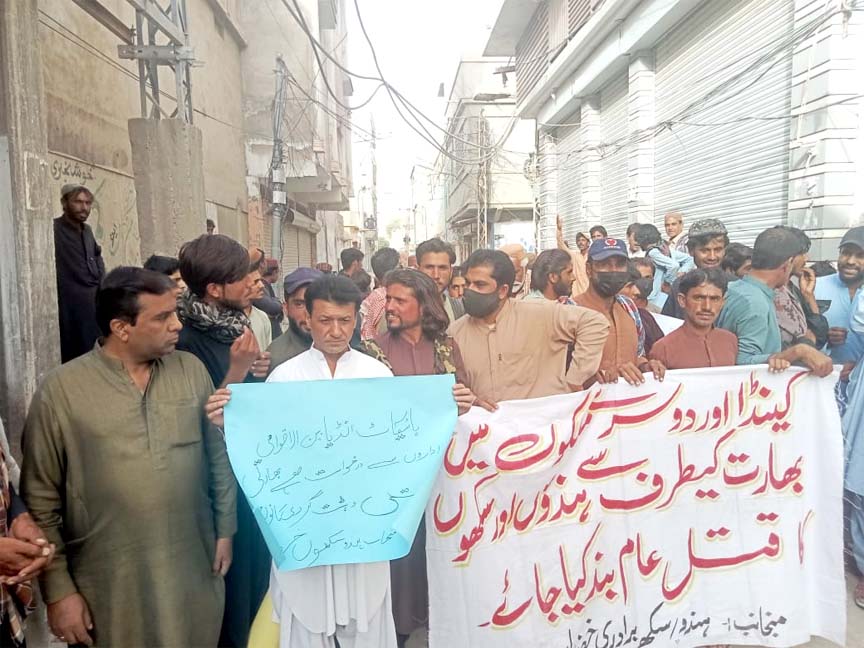 خوشخبری
بائیکاٹ انڈیا بین الاقوامی
اداروں سے درخواست ہے بھارتی
دہشت گردی کا نوٹس
منجانب ہندو سکھ
کینڈا اور دوسرے ملکوں میں
بھارت کیطرف سے ہندؤں اور سکھوں
کا قتل عام بند کیا جائے۔
منجانب:- ہندو/سکھ برادری